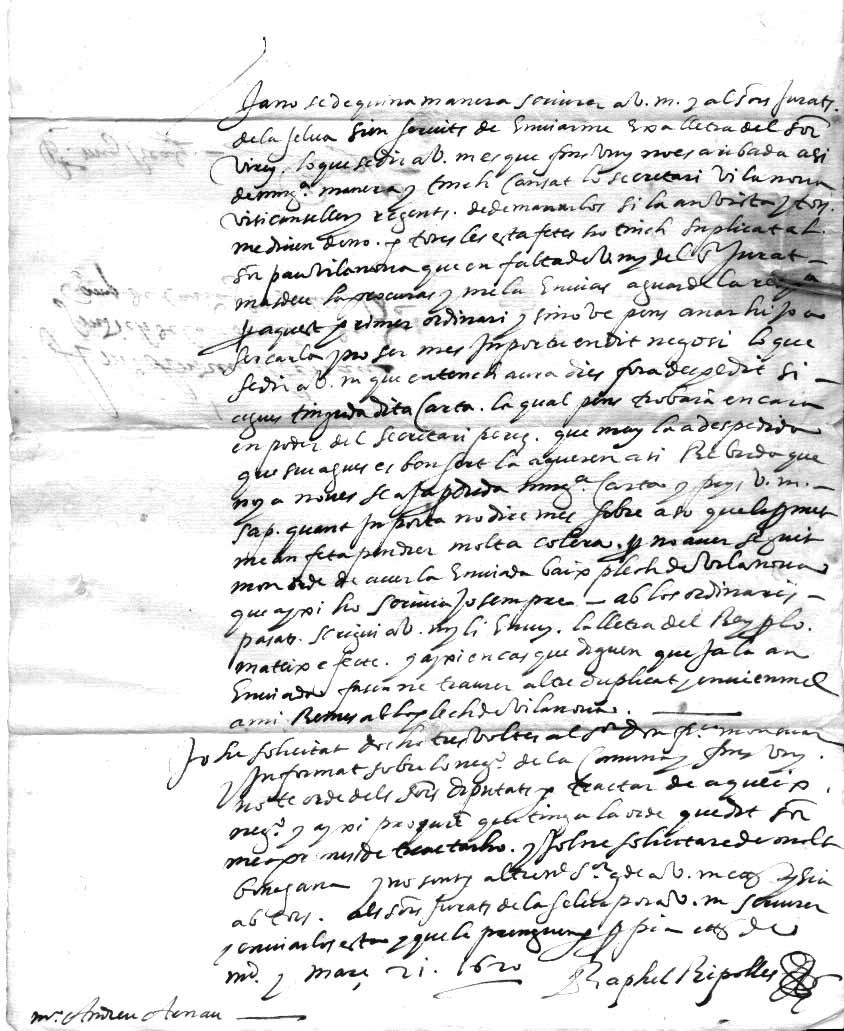 Ja no se de quina manera scriurer a V. m. y als sors Jurats
de la Selva sien servits de Enviarme Exa lletra del Sor
Virey. lo que se dir a V. m es que fins vuy no es aribada asi
de ning.ª manera y tinch cansat lo secretari Vilanova
visicanseller y regents. de demanarlos si la an vista y tots
me diuen de no. y totes les estafetes ho tinch suplicat al
Sor pau Vilanova que en falta de V. m y del Sr Jurat
masdeu la procuras y me la Envias aguardela
p aquest primer ordinari y sino ve pens anar hi Jo a
sercarla pro ser mes Inportu en dit negosi lo que
se dir a V. m que entench aura dies fora despedit si
agues tinguda dita Carta. la qual pens trobara encara
en poder del secretari perez. que may la a despedida
que si u agues es bon sert la agueren asi Rebuda que
no y a noves se aja pduda ning.ª Carta y puys V. m.
sap. quant Inporta no dire mes sobre aso que lo promet
me an feta pendrer molta colera. p no aver seguit
mon orde de averla Enviada baix plech de Vilanova
que axi ho scrivia Jo sempre ab los ordinaris
pasats. scriguí a V. m y li Envi. la lletra del Rey p lo
mateix efecte. y axi en cas que diguen que Ja la an
Enviada fasan ne traurer altre duplicat y envienmel
a mi Remes ab lo plech de Vilanova.
Jo he solicitat dos ho tres voltes al Sor don
y Informat sobre lo neg.º de la Comuna y fins vuy
no te orde dels Sors diputats p tractar de aqueix
neg.º y axi procure que tinga la orde que dit Sor
me a promes de tractarho. y Jo ho solicitare de molt
bona gana y no sent
ab tots. als Sors Jurats de la Selva pora V. m scriurer
y enviarlos esta y que la prenguen p pia de
m.d y mars 21. 1620 Raphel Ripolles
m.r Andreu Arnau